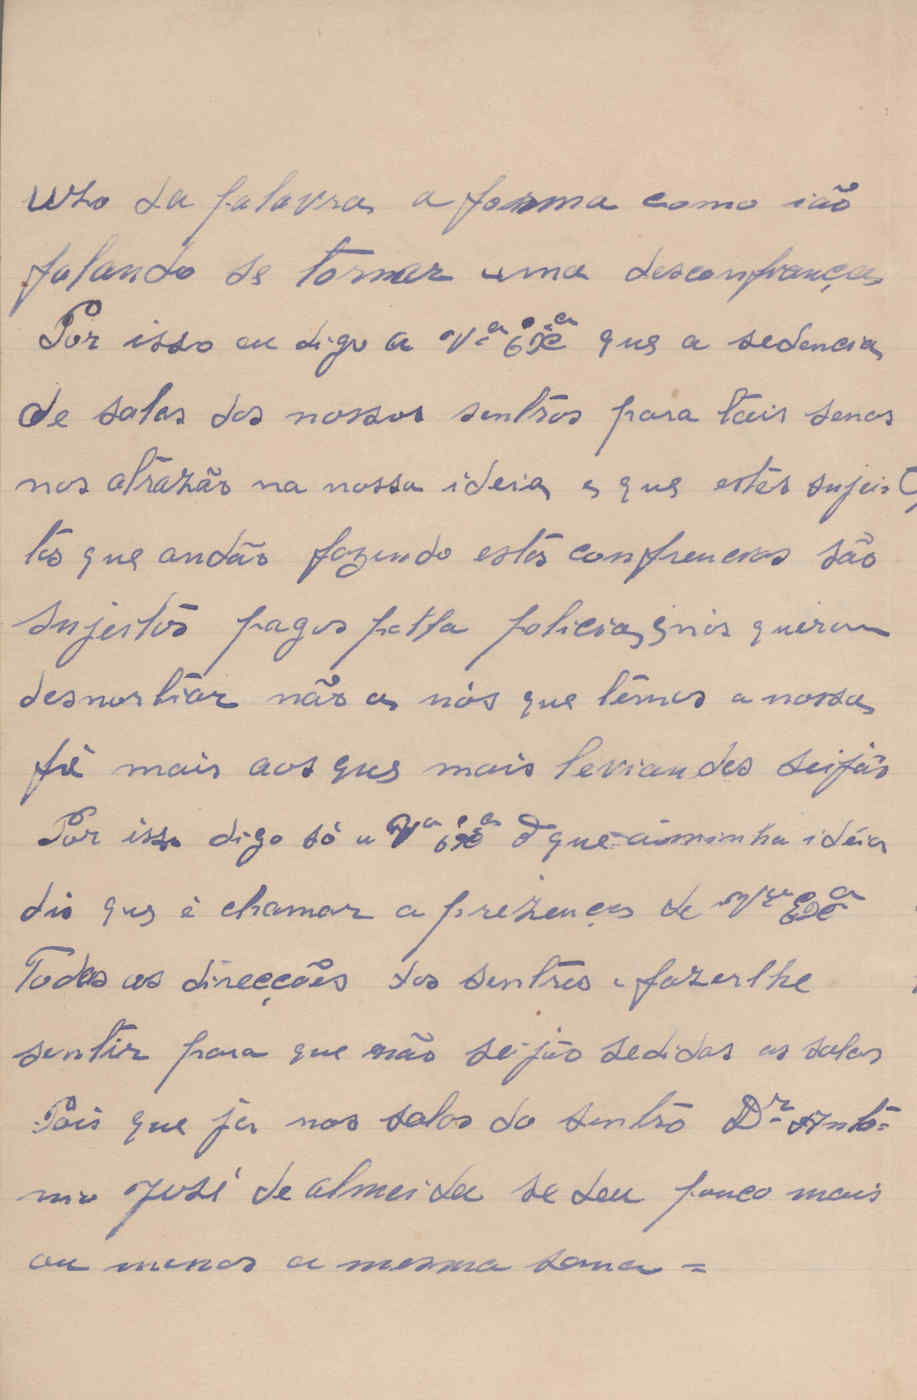 uso da palavra a forma como ião
falando se tornar uma desconfiança
Por isso eu digo a V.ª Exª que a sedencia
de salas dos nossos sentros para tais senas
nos atrazão na nossa ideia, e que estes sujei
tos que andão fazendo estas confrencias são
sujeitos pagos pella policia, que nos querem
desnortiar não a nós que têmos a nossa
fé mais aos que mais leviandos seijão
Por isso digo só a Vª Exª que a minha idéia
dis que é chamar a prezença de Vª Exª
Todas as direcções dos sentros e fazerlhe
sentir para que não seijão sedidas as salas
Pois que já nas salas do sentro Dr. Antó=
nio José de almeida se deu pouco mais
ou menos a mesma sena =